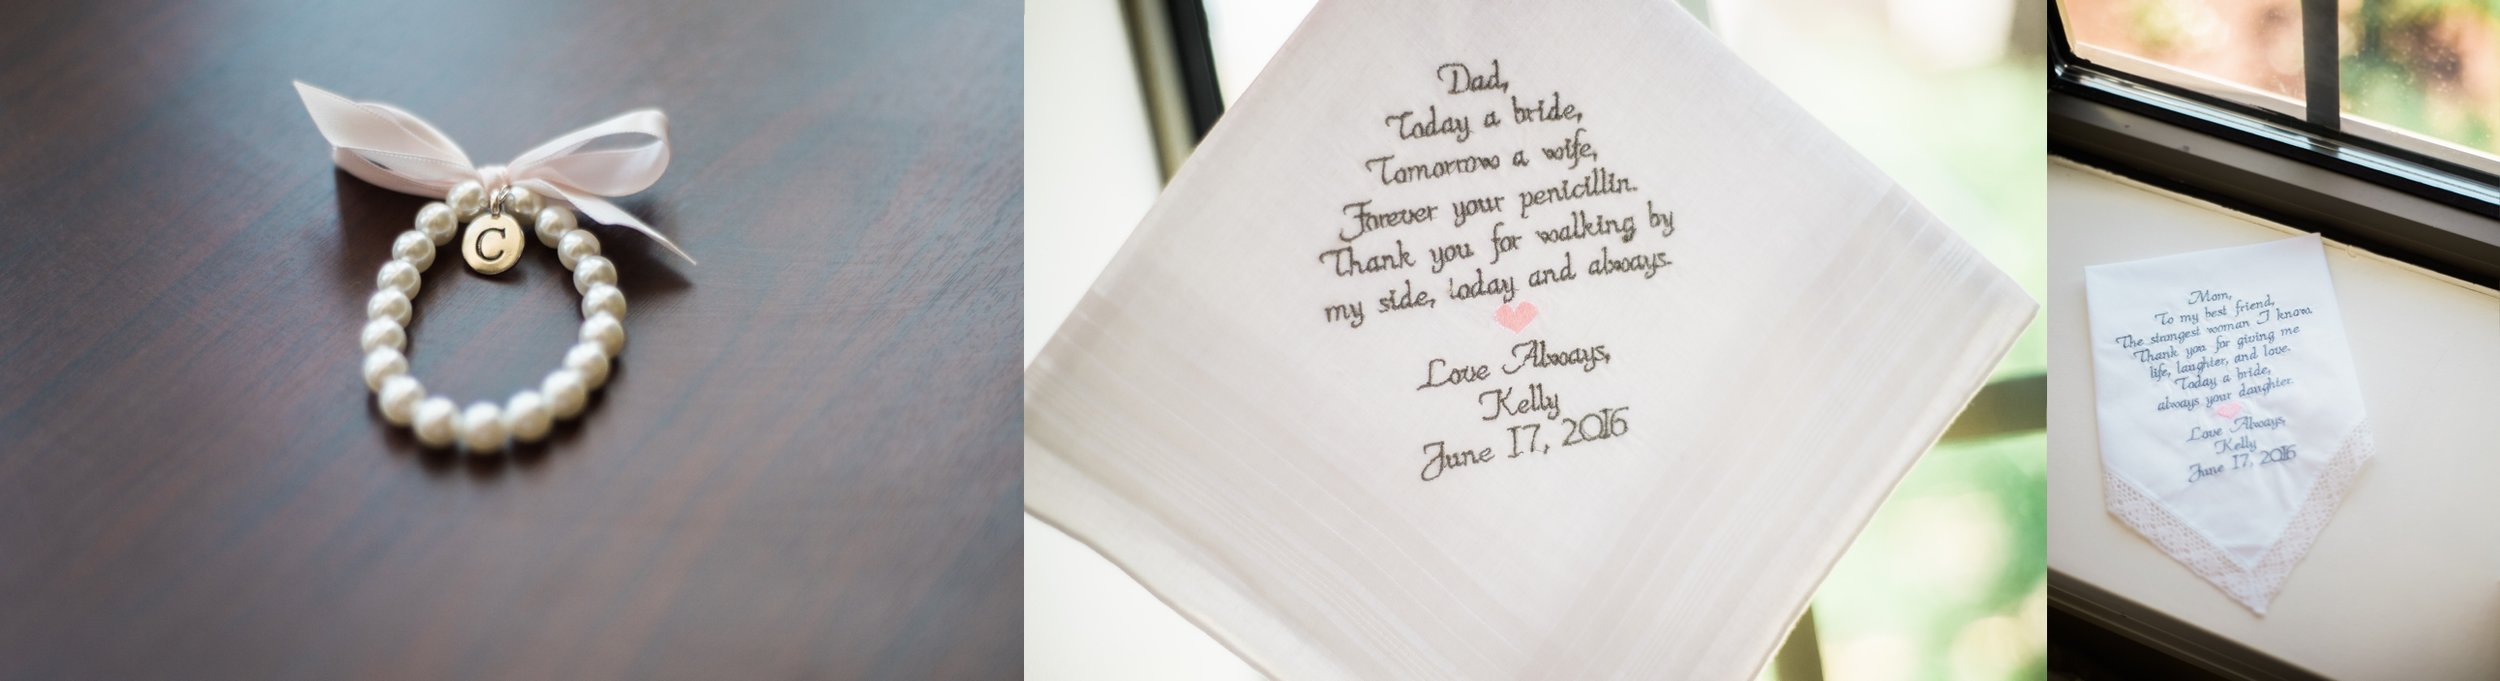 C
Dad,
Today a bride,
Tomorrow a wife,
Forever your penicillin.
Thank you for walking by
my side, today and always.
Love Always,
Kelly
June 17, 2016
Mom,
To my best friend,
The strongest woman I know.
Thank you for giving me
life, laughter, and love.
Today a bride,
always your daughter.
Love Always,
Kelly
June 17, 2016